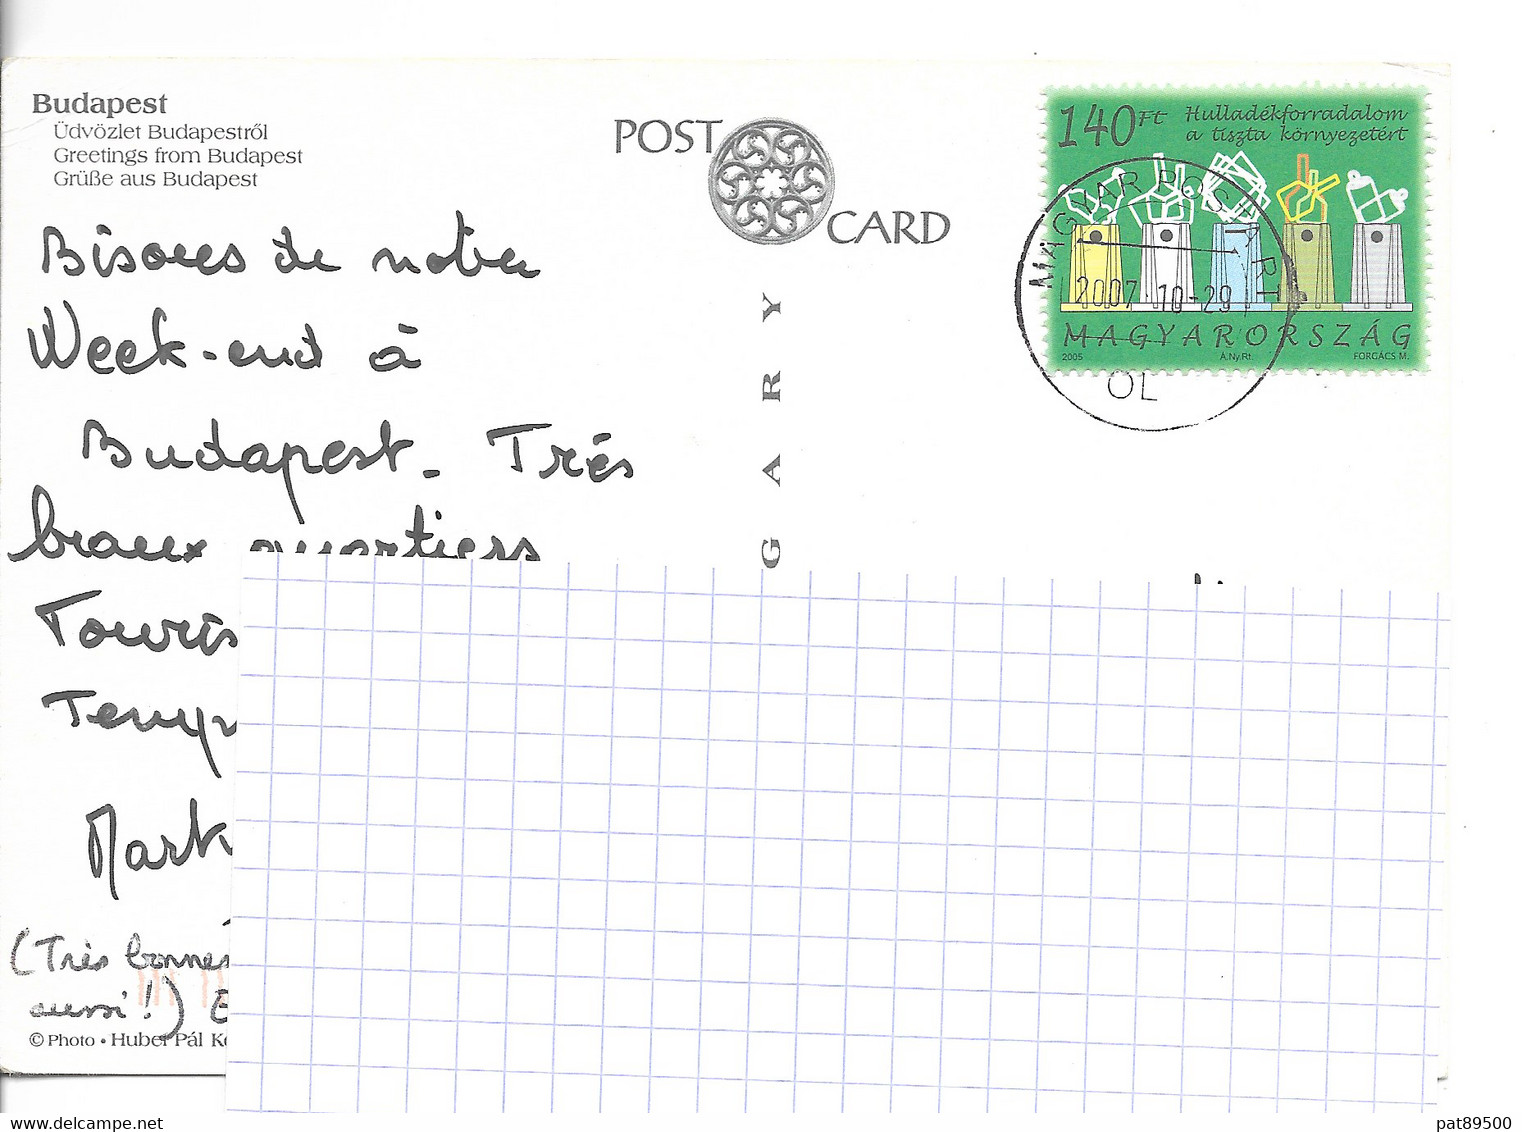 Budapest
Üdvözlet Budapestről
Greetings from Budapest
Grüße aus Budapest
POST
CARD
140 Ft Hulladékforradalom
a tiszta környezetért
MAGYAR POSTA RT
2007 10-29
MAGYARORSZÁG
2005 Á.Ny.Rt. FORGÁCS M.
OL
GARY
Bisous de notre
Week-end à
Budapest. Très
beaux quartiers
Touris
Temp
Mark
(Très bonnes
aussi!)
© Photo • Huber Pál K
delcampe.net
pat89500